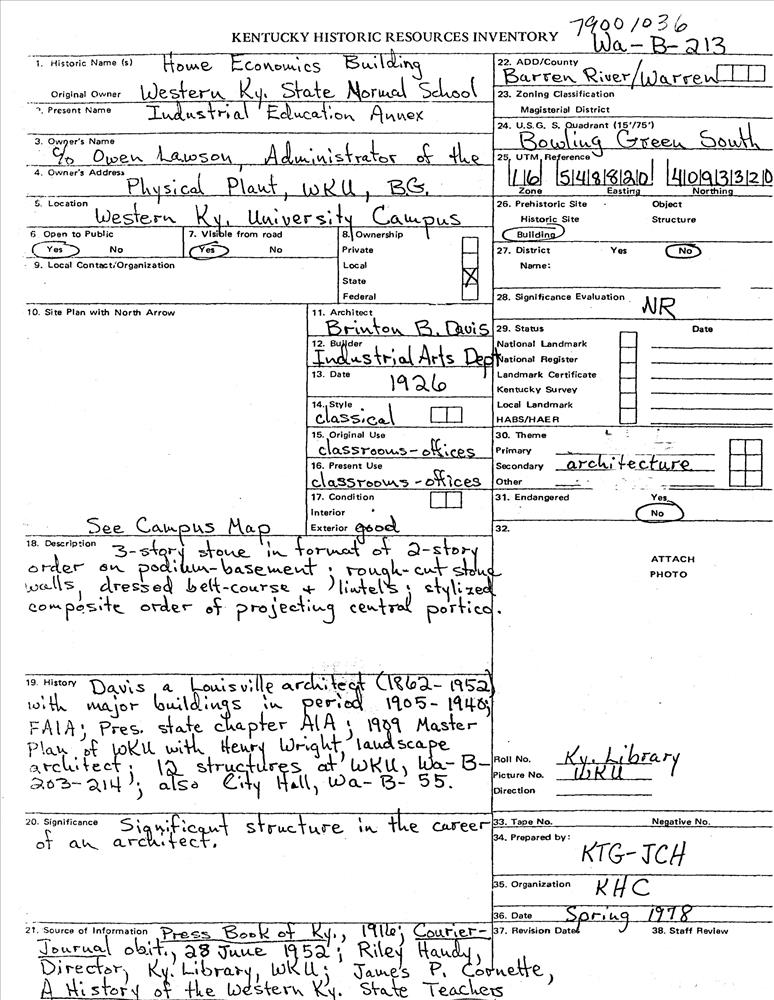 79001036
KENTUCKY HISTORIC RESOURCES INVENTORY
Wa-B-213
1. Historic Name (s) Home Economics Building
Original Owner Western Ky. State Normal School
2. Present Name Industrial Education Annex
3. Owner's Name
c/o Owen Lawson, Administrator of the
4. Owner's Address
Physical Plant, WKU, BG.
5. Location
Western Ky. University Campus
6 Open to Public
Yes No
7. Visible from road
Yes No
8. Ownership
Private
Local
State X
Federal
9. Local Contact/Organization
10. Site Plan with North Arrow
See Campus Map
11. Architect
Brinton B. Davis
12. Builder
Industrial Arts Dept
13. Date
1926
14. Style
classical
15. Original Use
classrooms-offices
16. Present Use
classrooms-offices
17. Condition
Interior
Exterior good
18. Description 3-story stone in format of 2-story
order on podium-basement; rough-cut stone
walls, dressed belt-course + lintels; stylized
composite order of projecting central portico.
19. History Davis a Louisville architect (1862-1952)
with major buildings in period 1905-1940;
FAIA; Pres. state chapter AIA; 1909 Master
Plan of WKU with Henry Wright, landscape
architect; 12 structures at WKU, Wa-B-
203-214; also City Hall, Wa-B-55.
20. Significance Significant structure in the career
of an architect.
21. Source of Information Press Book of Ky., 1916; Courier-
Journal obit., 28 June 1952; Riley Handy,
Director, Ky. Library, WKU; James P. Cornette,
A History of the Western Ky. State Teachers
22. ADD/County
Barren River/Warren
23. Zoning Classification
Magisterial District
24. U.S.G. S. Quadrant (15'/75')
Bowling Green South
25. UTM Reference
16 548820 4093320
Zone Easting Northing
26. Prehistoric Site Object
Historic Site Structure
Building
27. District Yes No
Name:
28. Significance Evaluation NR
29. Status Date
National Landmark
National Register
Landmark Certificate
Kentucky Survey
Local Landmark
HABS/HAER
30. Theme
Primary
Secondary architecture
Other
31. Endangered Yes
No
32.
ATTACH
PHOTO
Roll No. Ky. Library
Picture No. WKU
Direction
33. Tape No. Negative No.
34. Prepared by:
KTG-JCH
35. Organization KHC
36. Date Spring 1978
37. Revision Dates 38. Staff Review